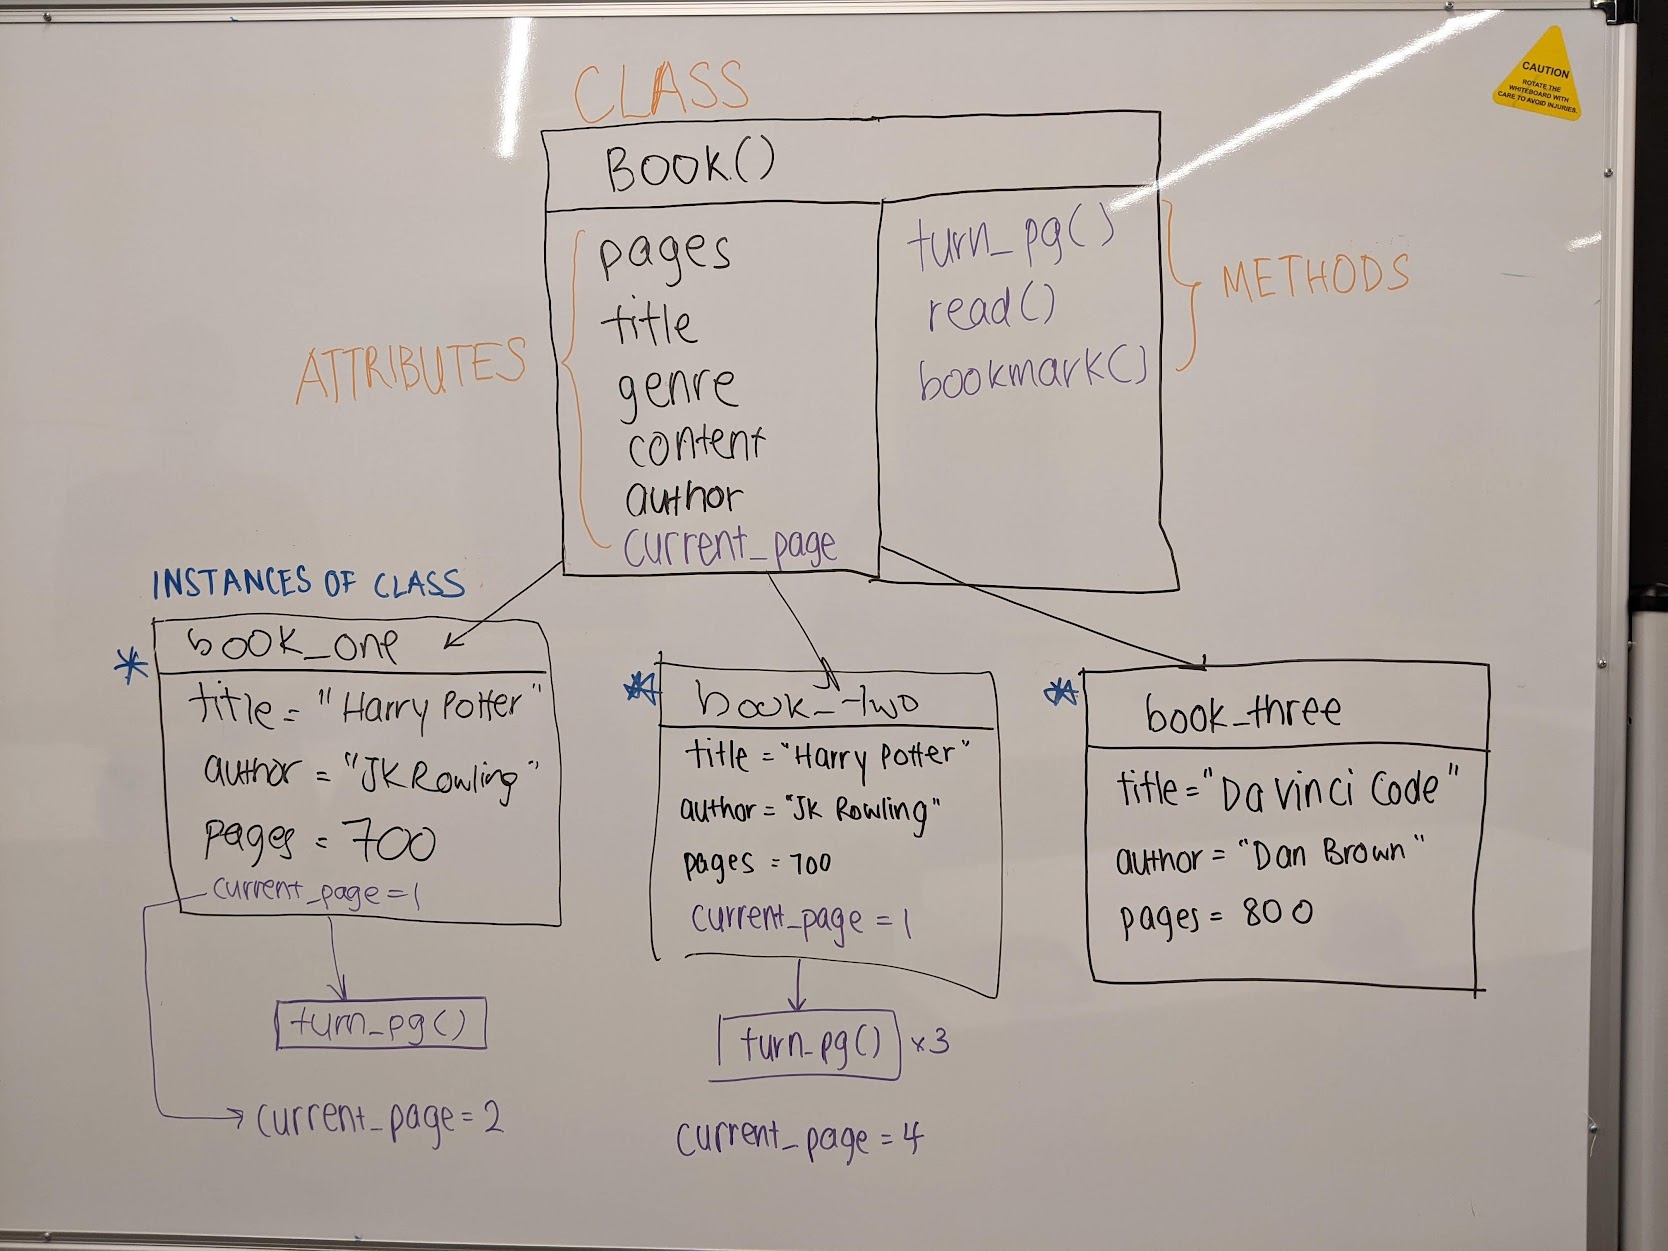 CAUTION
ROTATE THE
WHITEBOARD WITH
CARE TO AVOID INJURIES.
CLASS
BOOK()
ATTRIBUTES
pages
title
genre
content
author
current_page
turn_pg()
read()
bookmark()
METHODS
INSTANCES OF CLASS
book_one
title = "Harry Potter"
author = "JK Rowling"
pages = 700
current_page = 1
turn_pg()
current_page = 2
book_two
title = "Harry Potter"
author = "JK Rowling"
pages = 700
current_page = 1
turn_pg() x3
current_page = 4
book_three
title = "Da Vinci Code"
author = "Dan Brown"
pages = 800